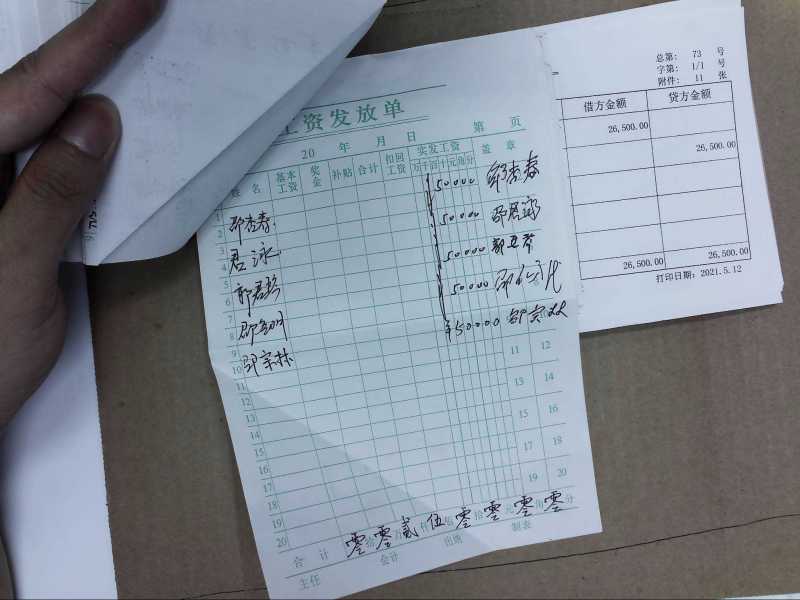 工资发放单
20 年 月 日 第 页
姓名 基本工资 奖金 补贴 合计 扣回工资 实发工资 盖章
万千百十元角分
1
2 邵杏春 50000 邹杏春
3
4 君泳 50000
5
6 50000
7
8 50000
9
10 邵宗林 ¥50000
11 11 12
12
13 13 14
14
15 15 16
16
17 17 18
18
19 19 20
20
合计 零拾零万贰仟伍佰零拾零元零角零分
主任 会计 出纳 制表
总第: 73 号
字第: 1/1 号
附件: 11 张
借方金额 贷方金额
26,500.00
26,500.00
26,500.00 26,500.00
打印日期: 2021.5.12